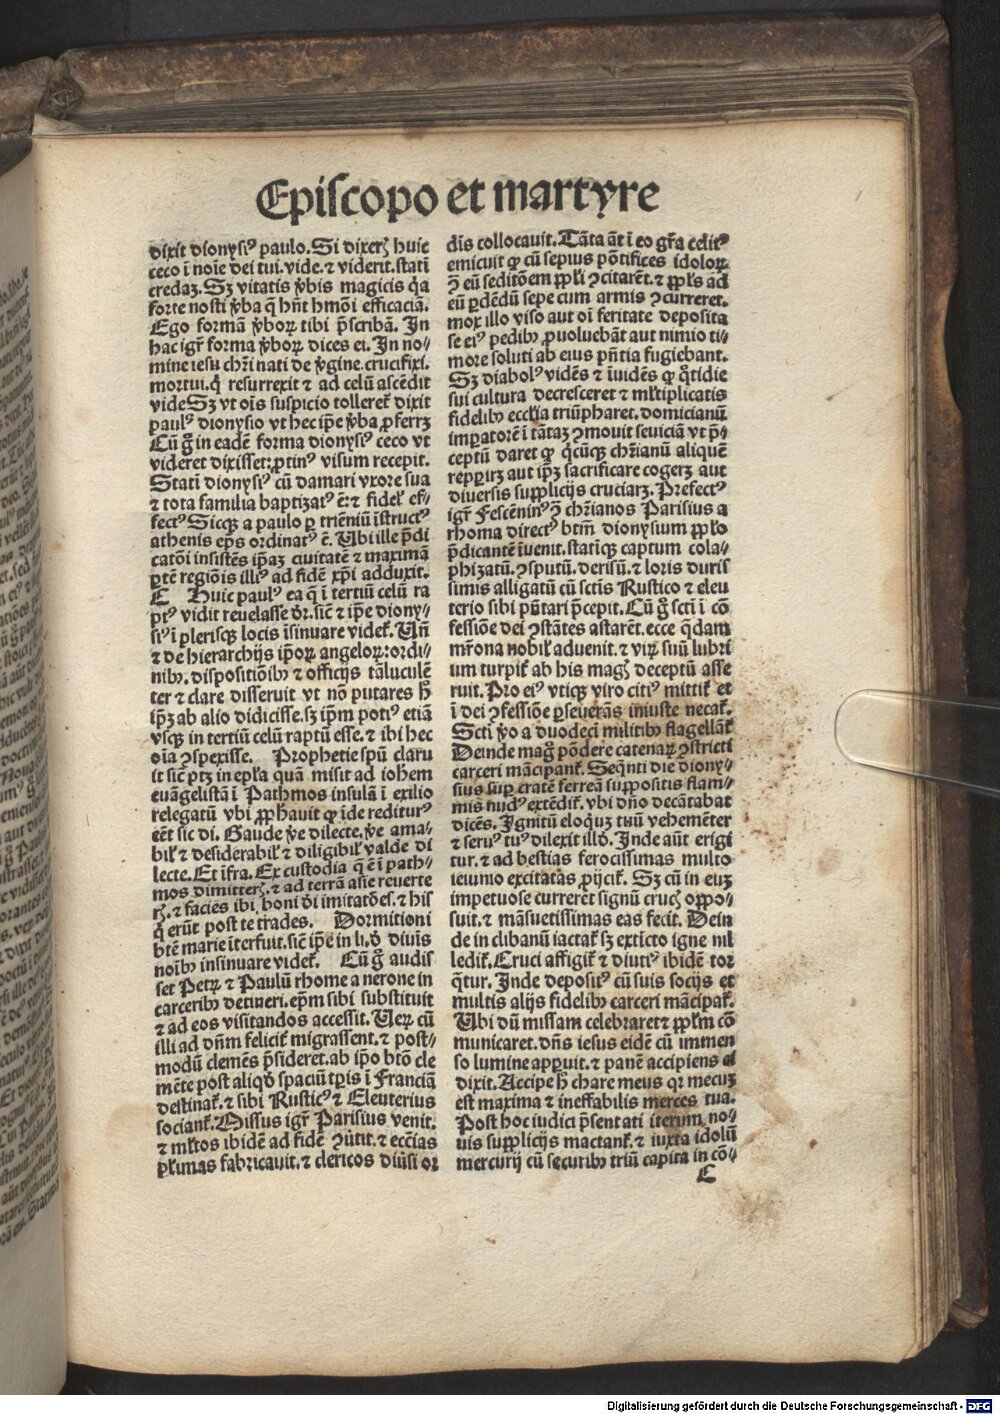 Episcopo et martyre
dixit dionysiꝰ paulo. Si dixerꝫ huic
ceco ī noīe dei tui. vide. ⁊ viderit. statī
credaꝫ. Sꝫ vitatis v̄bis magicis q̇a
forte nosti v̄ba q̄ hn̄t hmōi efficaciā.
Ego formā v̄boꝝ tibi p̄scribā. In
hac igr̄ forma v̄boꝝ dices ei. In no⸗
mine iesu chr̄i nati de v̄gine. crucifixi.
mortui. q̇ resurrexit ⁊ ad celū ascēdit
vide Sꝫ vt oīs suspicio tolleret᷑ dixit
paulꝰ dionysio vt hec ip̄e v̄ba ꝓferrꝫ
Cū g̊ in eadē forma dionysiꝰ ceco vt
videret dixisset: ꝓtinꝰ visum recepit.
Statī dionysiꝰ cū damari vxore sua
⁊ tota familia baptizatꝰ ē: ⁊ fidel᷑ ef⸗
fectꝰ Sicqꝫ a paulo ꝑ triēniū īstructꝰ
athenis ep̄s ordinatꝰ ē. Ubi ille p̄di
catōi insistēs ip̄aꝫ ciuitatē ⁊ maximā
ꝑtē regiōis illiꝰ ad fidē xp̄i adduxit.
C Huic paulꝰ ea q̄ ī tertiū celū ra
ptꝰ vidit reuelasse d̄r. sic̄ ⁊ ip̄e diony⸗
siꝰ ī plerisqꝫ locis īsinuare videt᷑. Un̄
⁊ de hierarchijs ip̄oꝝ angeloꝝ: ordi⸗
nibꝫ. dispositiōibꝫ ⁊ officijs tā luculē
ter ⁊ clare disseruit vt nō putares h̄
ip̄ꝫ ab alio didicisse. sꝫ ip̄m potiꝰ etiā
vsqꝫ in tertiū celū raptū esse. ⁊ ibi hec
oīa ꝯspexisse. Prophetie spū claru
it sic̄ ptꝫ in ep̄la quā misit ad iohem
euāgelistā ī Pathmos insulā ī exilio
relegatū vbi ꝓphauit ꝙ īde rediturꝰ
eēt sic di. Gaude v̄e dilecte. v̄e ama⸗
bil᷑ ⁊ desiderabil᷑ ⁊ diligibil᷑ valde di
lecte. Et īfra. Ex custodia q̄ ē ī path⸗
mos dimitterꝫ. ⁊ ad terrā asie reuerte
rꝫ. ⁊ facies ibi. boni d̄i imitatōes. ⁊ his
q̇ erūt post te trades. Dormitioni
btē marie īterfuit. sic̄ ip̄e in li. d̄ diuīs
noībꝫ insinuare videt᷑. Cū g̊ audis
set Petꝝ ⁊ Paulū rhome a nerone in
carceribꝫ detineri. ep̄m sibi substituit
⁊ ad eos visitandos accessit. Ueꝝ cū
illi ad dn̄m felicit᷑ migrassent. ⁊ post⸗
modū clemēs p̄sideret. ab ip̄o btō cle
mēte post aliqd̄ spaciū tp̄is ī Franciā
destinat᷑. ⁊ sibi Rusticꝰ ⁊ Eleuterius
sociant᷑. Missus igr̄ Parisius venit.
⁊ ml̄tos ibidē ad fidē ꝯūtit. ⁊ ecc̄ias
pl̄imas fabricauit. ⁊ clericos diūsi or
dīs collocauit. Tāta āt ī eo gr̄a celitꝰ
emicuit ꝙ cū sepius pōtifices idoloꝝ
ꝯ̄ eū seditōem ppl̄i ꝯcitarēt. ⁊ ppl̄s ad
eū ꝑdēdū sepe cum armis ꝯcurreret.
mox illo viso aut oī feritate deposita
se eiꝰ pedibꝫ ꝓuoluebāt aut nimio ti⸗
more soluti ab eius pn̄tia fugiebant.
Sꝫ diabolꝰ vidēs ⁊ īuidēs ꝙ q̊tidie
sui cultura decresceret ⁊ ml̄tiplicatis
fidelibꝫ eccl̄ia triūpharet. domicianū
imꝑatorē ī tātaꝫ ꝯmouit seuiciā vt p̄⸗
ceptū daret ꝙ q̇cūqꝫ chr̄ianū aliquē
repꝑirꝫ aut ip̄ꝫ sacrificare cogerꝫ aut
diuersis supplicijs cruciarꝫ. Prefectꝰ
igr̄ Fescēninꝰ ꝯ̄ chr̄ianos Parisius a
rhoma directꝰ btm̄ dionysium ppl̄o
p̄dicantē īuenit. statīqꝫ captum cola⸗
phizatū. ꝯsputū. derisū. ⁊ loris duris
simis alligatū cū sctīs Rustico ⁊ eleu
terio sibi pn̄tari p̄cepit. Cū g̊ sctī ī cō
fessiōe dei ꝯstātes astarēt. ecce q̄dam
mr̄ona nobil᷑ aduenit. ⁊ viꝝ suū lubri
um turpit᷑ ab his magꝫ deceptū asse
ruit. Pro eiꝰ vtiqꝫ viro citiꝰ mittit᷑ et
ī dei ꝯfessiōe ꝑseuerās iniuste necat᷑.
Sctī v̄o a duodeci militibꝫ flagellāt᷑
Deinde magꝫ pōdere catenaꝝ ꝯstricti
carceri mācipant᷑. Seq̄nti die diony⸗
sius suꝑ cratē ferreā suppositis flam⸗
mis nudꝰ extēdit᷑. vbi dn̄o decātabat
dicēs. Ignitū eloquꝫ tuū vehemēter
⁊ seruꝰ tuꝰ dilexit illd̄. Inde aūt erigi
tur. ⁊ ad bestias ferocissimas multo
ieiunio excitatas ꝓijcit᷑. Sꝫ cū in euꝫ
impetuose curreret signū crucꝫ oppo⸗
suit. ⁊ māsuetissimas eas fecit. Dein
de in clibanū iactat᷑ sꝫ extīcto igne nil
ledit᷑. Cruci affigit᷑ ⁊ diutiꝰ ibidē tor
q̄tur. Inde depositꝰ cū suis socijs et
multis alijs fidelibꝫ carceri mācipat᷑.
Ubi dū missam celebraret ⁊ ppl̄m cō
municaret. dn̄s iesus eidē cū immen
so lumine apparuit. ⁊ panē accipiens ei
dixit. Accipe h̄ chare meus qꝛ mecuꝫ
est maxima ⁊ ineffabilis merces tua.
Post hoc iudici p̄sentati iterum no⸗
uis supplicijs mactant᷑. ⁊ iuxta idolū
mercurij cū securibꝫ triū capita in cō⸗
C
Digitalisierung gefördert durch die Deutsche Forschungsgemeinschaft - DFG